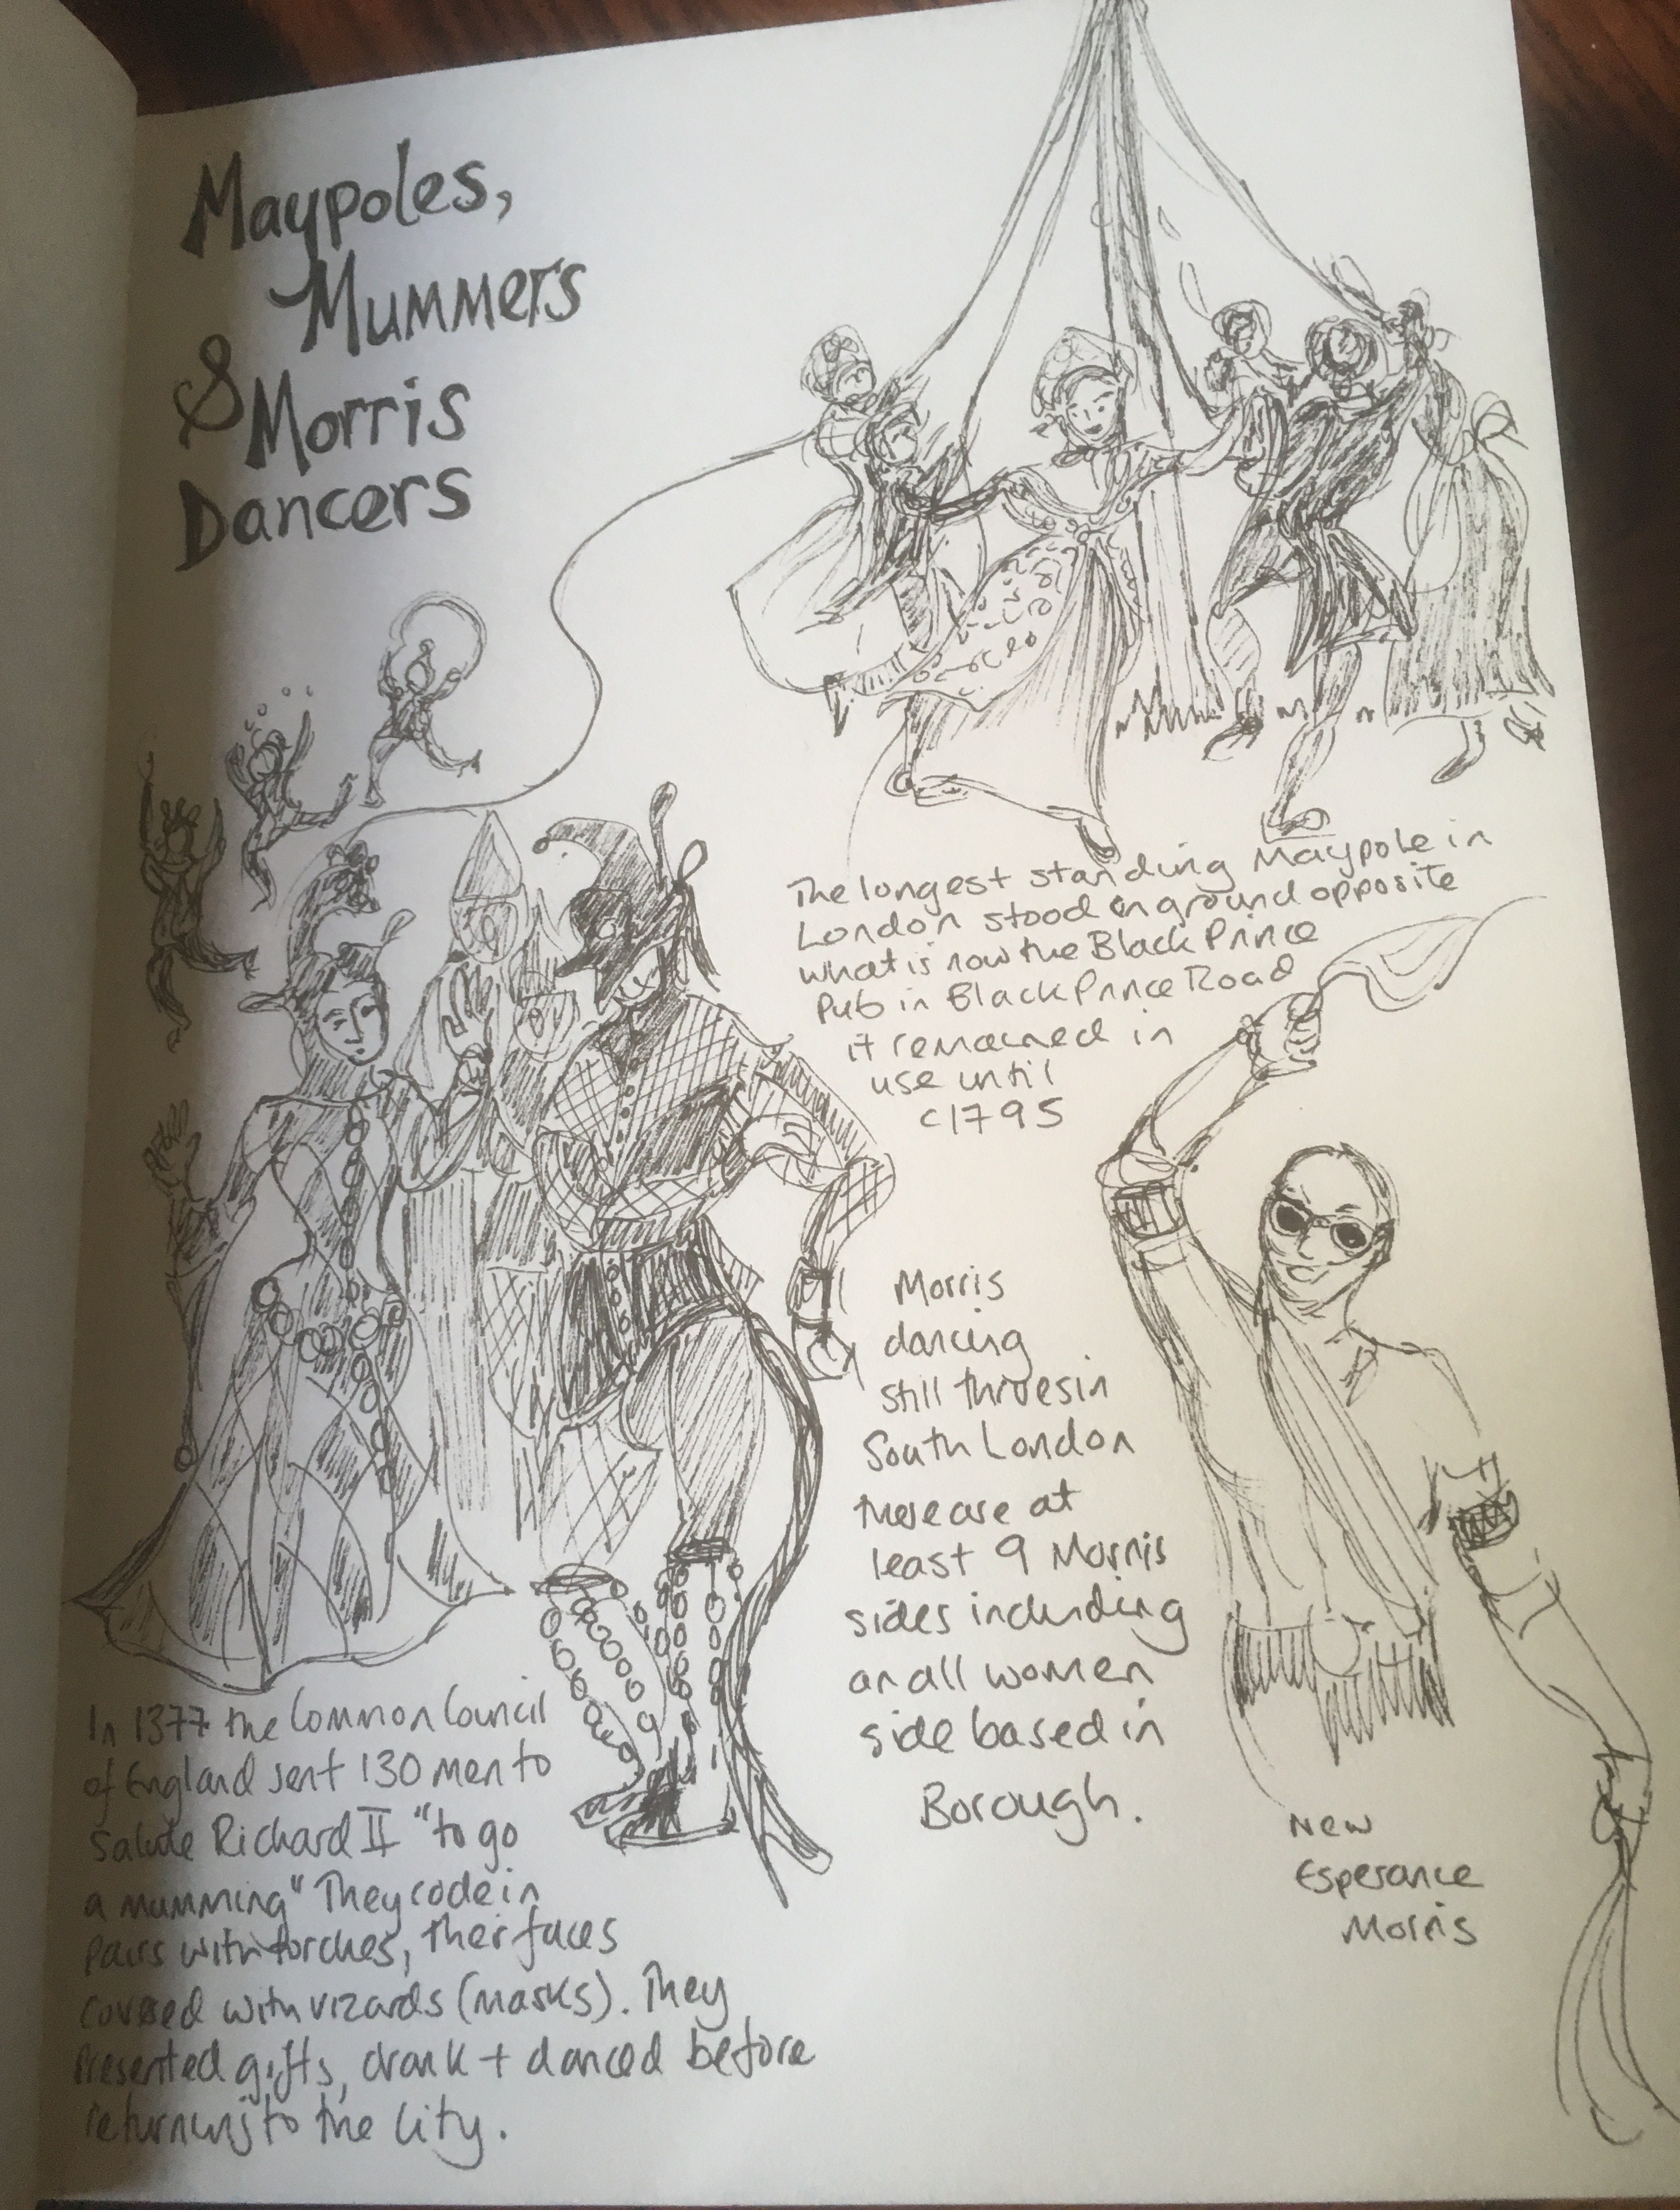 Maypoles,
Mummers
& Morris
Dancers
The longest standing Maypole in
London stood on ground opposite
what is now the Black Prince
Pub in Black Prince Road
it remained in
use until
c1795
Morris
dancing
still thrives in
South London
there are at
least 9 Morris
sides including
an all women
side based in
Borough.
New
Esperance
Morris
In 1377 the Common Council
of England sent 130 men to
salute Richard II "to go
a mumming" They rode in
pairs with torches, their faces
covered with vizards (masks). They
presented gifts, drank + danced before
returning to the City.